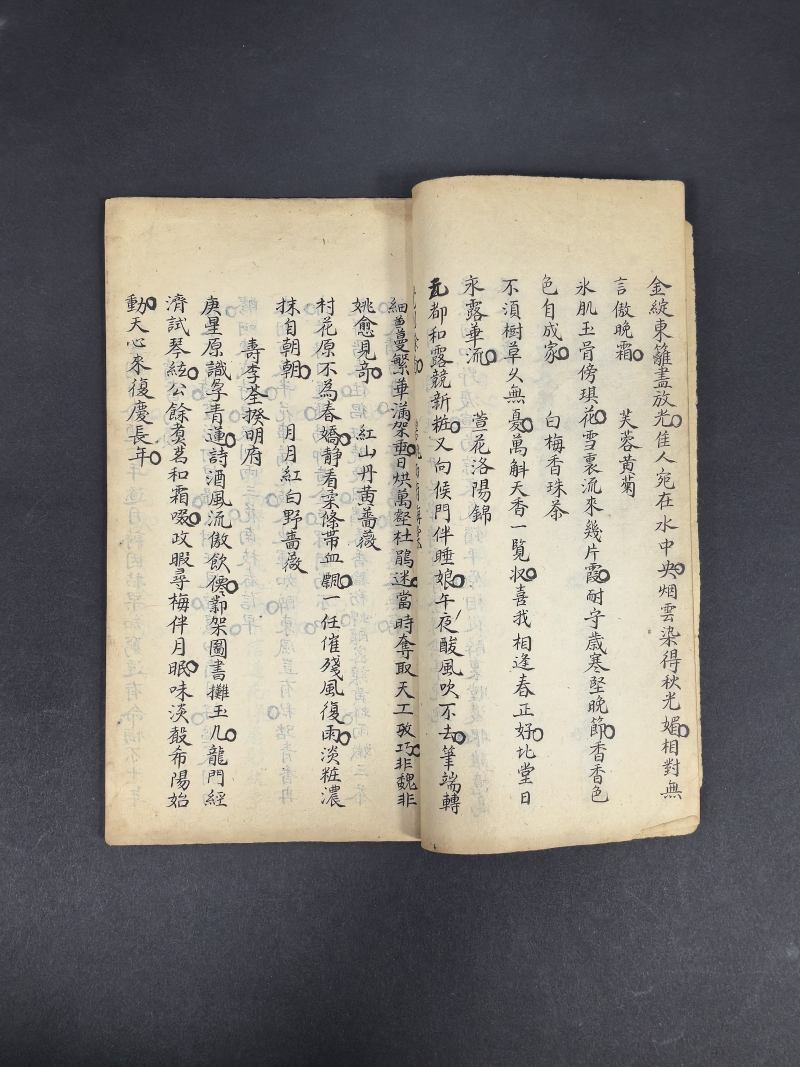 金綻東籬盡放光佳人宛在水中央烟雲染得秋光媚相對無
言傲晚霜　芙蓉黃菊
氷肌玉骨傍琪花雪裏流來幾片霞耐守歲寒堅晚節香香色
色自成家　白梅香珠茶
不須樹草久無憂萬斛天香一覽收喜我相逢春正好北堂日
永露華流　萱花洛陽錦
都和露競新粧又向候門伴睡娘午夜酸風吹不去筆端轉
細蔓繁華滿架垂日烘萬壑杜鵑迷當時奪取天工巧非魏非
姚愈見奇　紅山丹黃薔薇
村花原不為春嬌靜看柔條帶血飄一任催殘風復雨淡粧濃
抹自朝朝　月月紅白野薔薇
壽李荃揆明府
庚星原識孕青蓮詩酒風流傲飲僊鄴架圖書攤玉几龍門經
濟試琴絃公餘煮茗和霜啜政暇尋梅伴月眠味淡聲希陽始
動天心來復慶長年